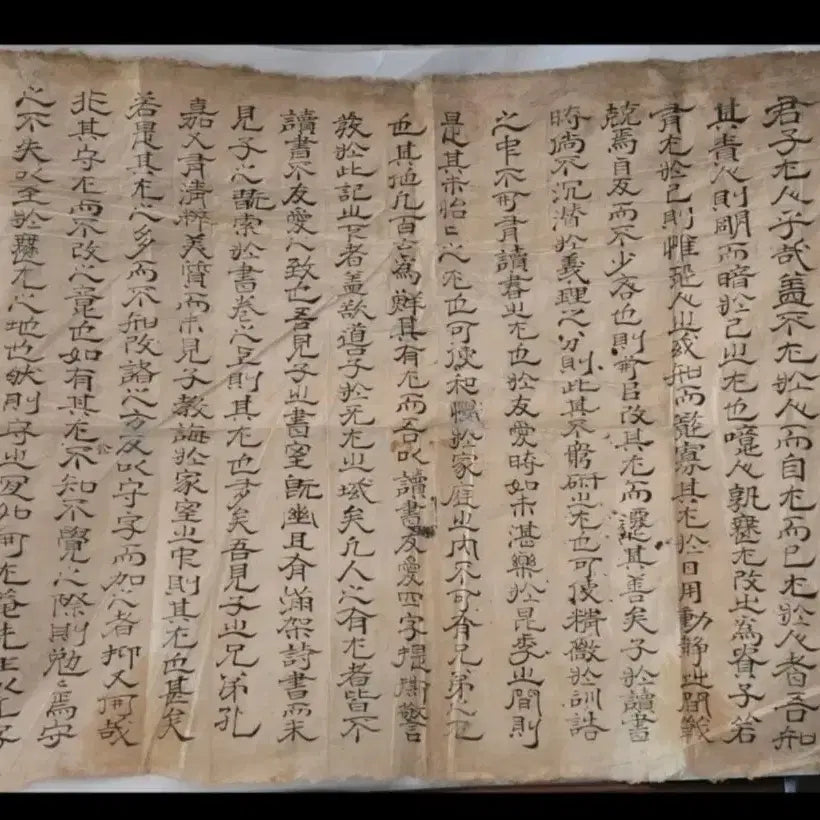 君子尤人乎哉蓋不尤於人而自尤而已尤於人者吾知
其責人則明而暗於己之尤也噫人孰無尤改之爲貴子若
有尤於己則惟恐人之或知而寡其尤於日用動靜之間戰
兢焉自反而不少吝也則斯臣改其尤而遷其善矣子於讀書
時倘不沉潛於義理之分則此其不窮硏之尤也可使精微於訓誥
之中不可有讀書之尤也於友愛時如未湛樂於昆季之間則
是其未怡怡之尤也可使和於家庭之內不可有兄弟之尤
也其他凡百言爲鮮其有尤而吾以讀書友愛四字提撕警
於此記之下者蓋欲道吾子於无尤之域矣凡人之有尤者皆不
讀書不友愛之致也吾見子之書室旣幽且有滿架詩書而未
見子之玩索於書卷之上則其尤也多矣吾見子之兄弟孔
嘉又有淸粹美質而未見子敎誨於家室之中則其尤也甚矣
若是其尤之多而不知改諸之方反以守字而加之者抑又何哉
非其守尤而不改之意也如有其尤不知不覺之際則勉勉焉守
之不失以至於無尤之地也然則守之反如何尤菴先生以尤字